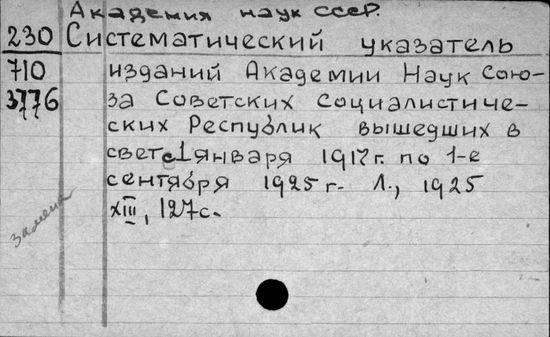 Академия наук СССР.
230 Систематический указатель
710 изданий Академии Наук Сою-
3776 за Советских Социалистиче-
ских Республик вышедших в
свет с 1 января 1917 г. по 1-е
сентября 1925 г. Л., 1925
XIII, 127 с.
замена